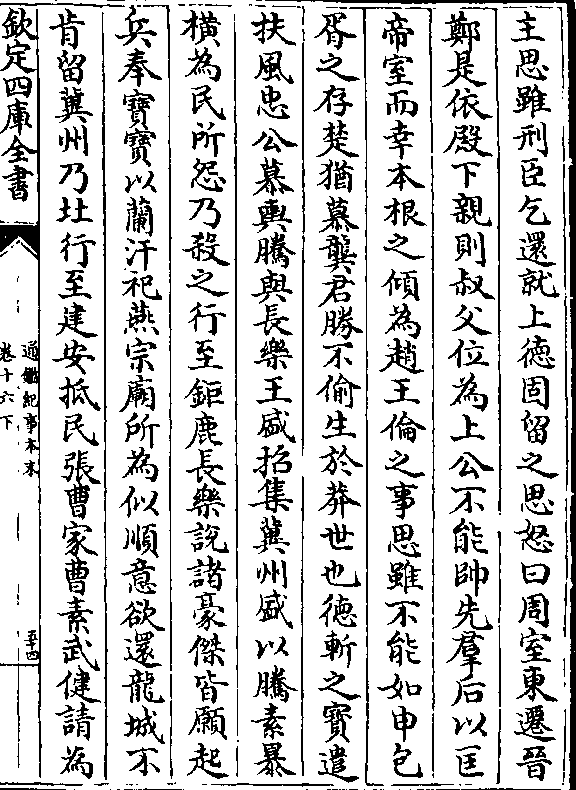 主思雖刑臣乞還就上德固留之思怒曰周室東遷晉
鄭是依殿下親則叔父位為上公不能帥先羣后以匡
帝室而幸本根之傾為趙王倫之事思雖不能如申包
胥之存楚猶慕龔君勝不偷生於莽世也德斬之寶遣
扶風忠公慕輿騰與長樂王盛招集冀州盛以騰素暴
橫為民所怨乃殺之行至鉅鹿長樂說諸豪傑皆願起
兵奉寶寶以蘭汗祀燕宗廟所為似順意欲還龍城不
肯留冀州乃北行至建安抵民張曹家曹素武健請為
欽定四庫全書
通鑑紀事本末
卷十六下
五十四